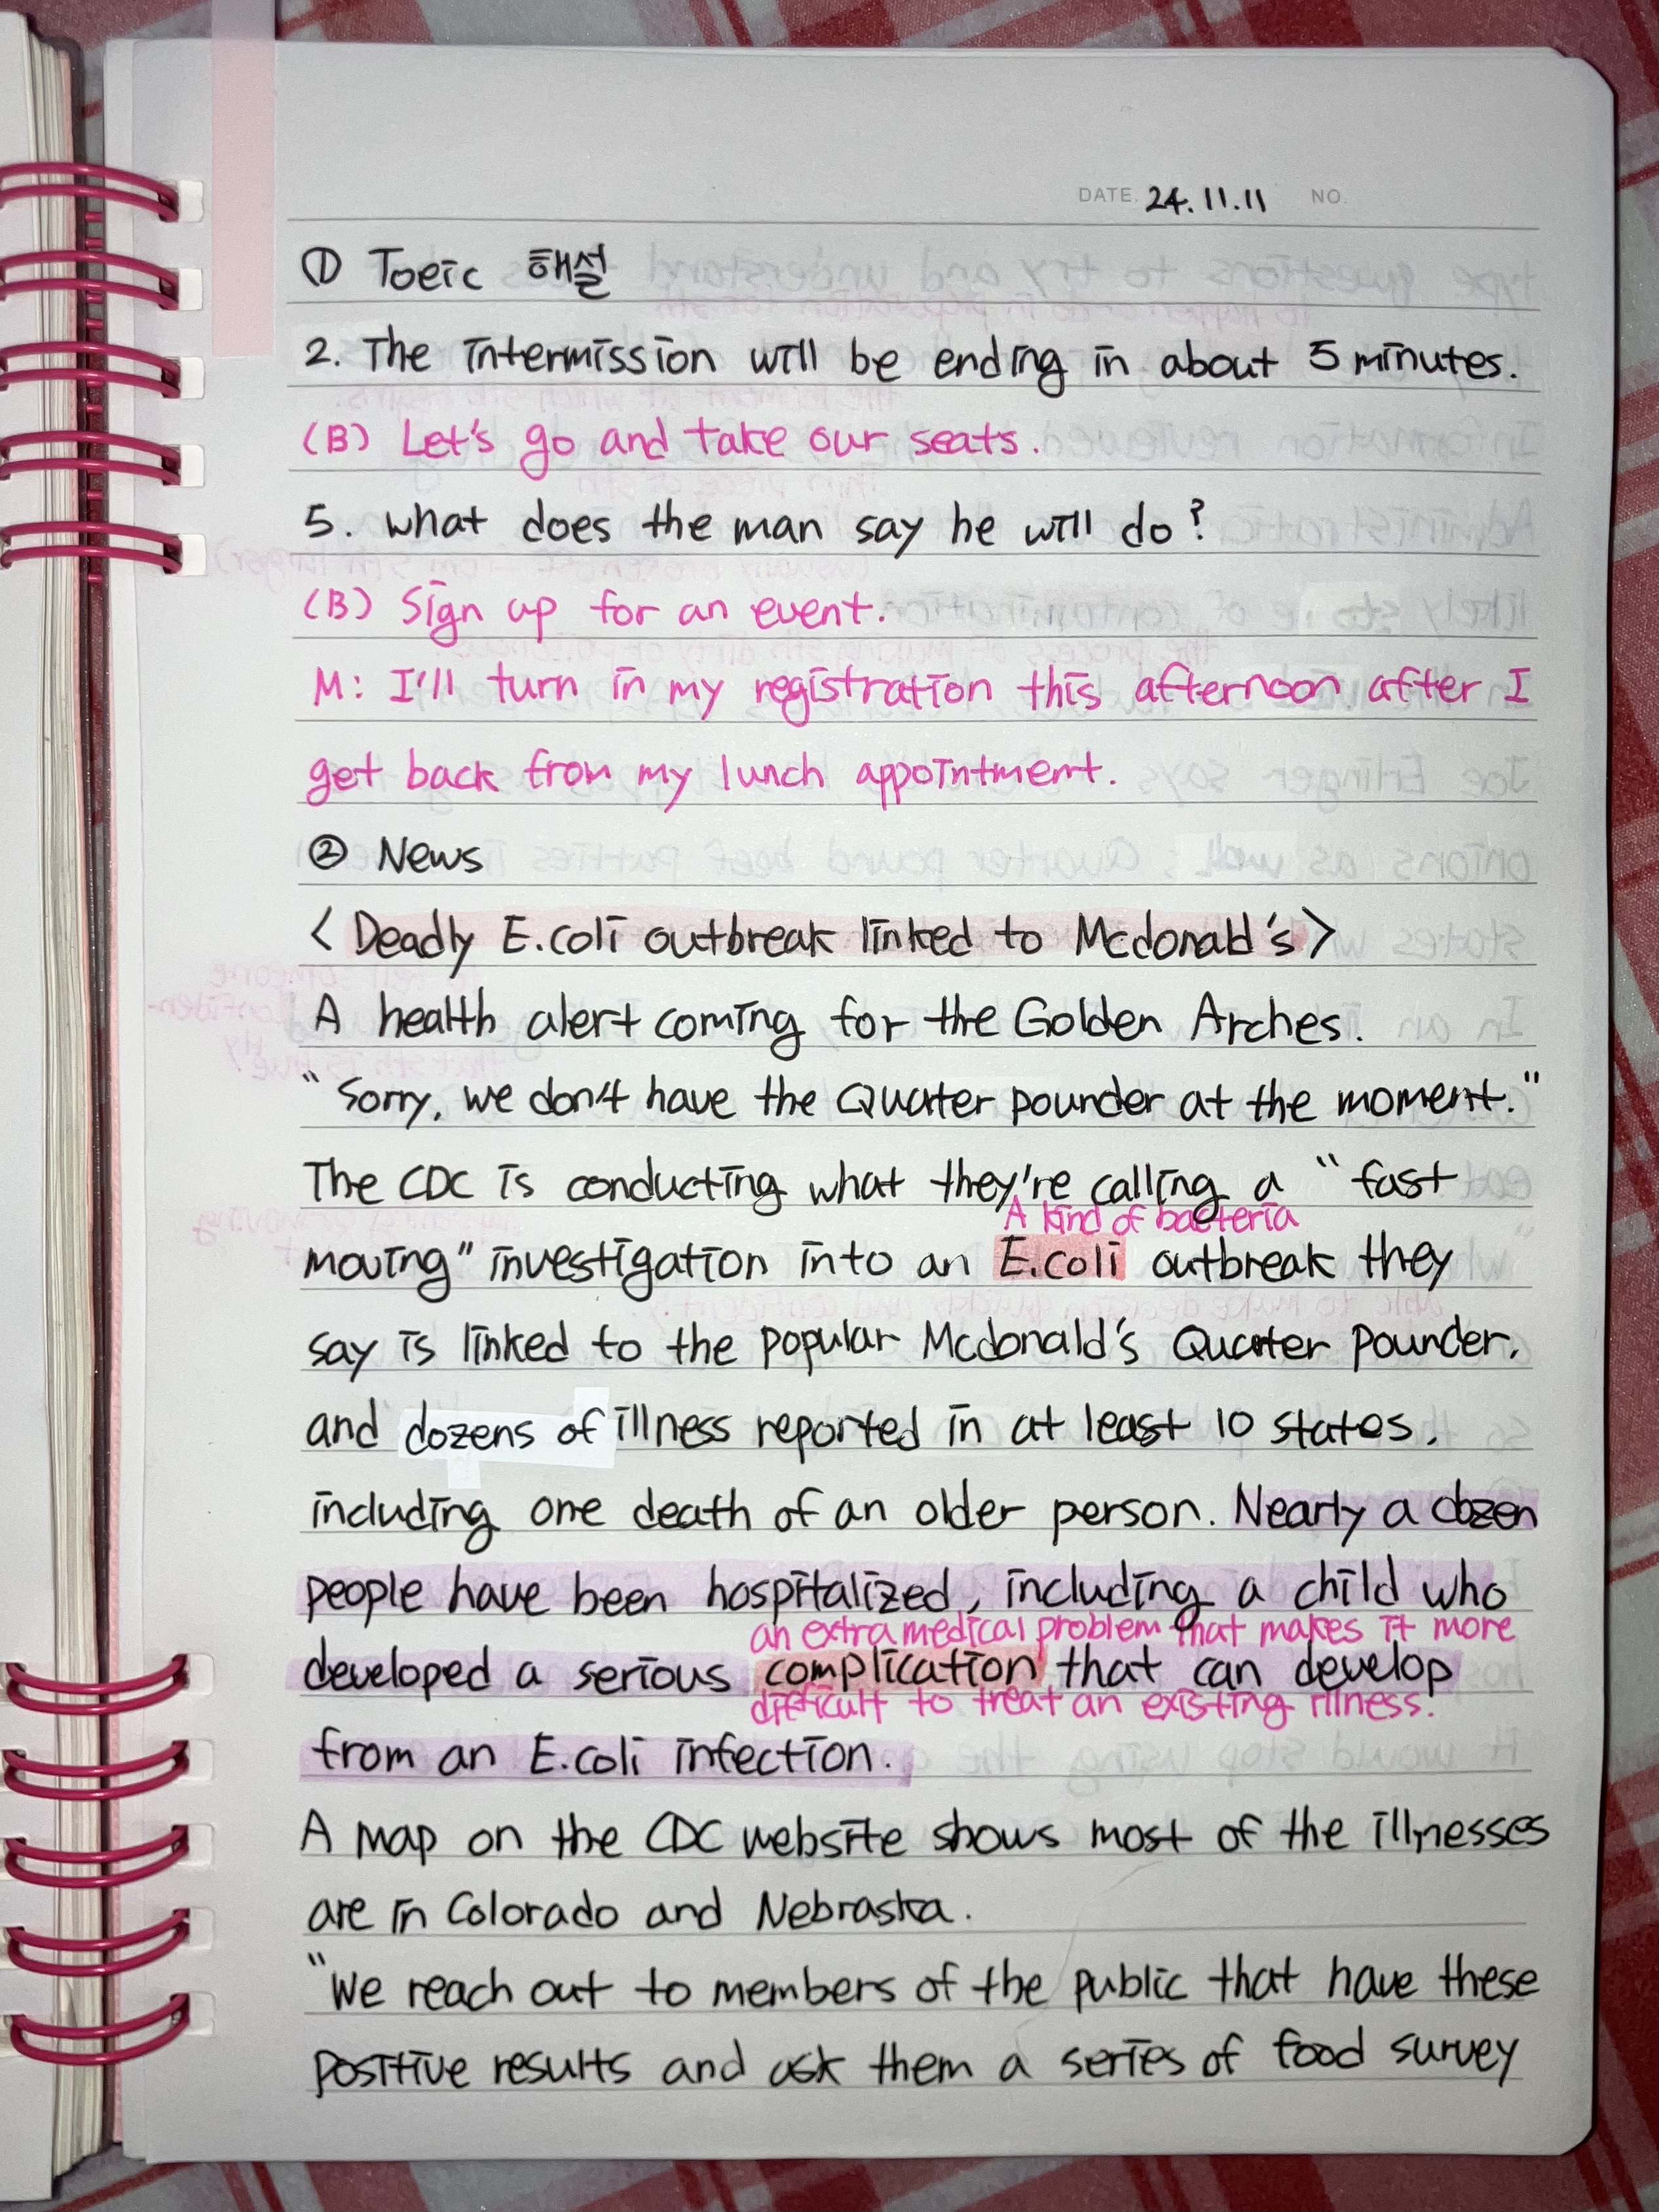 DATE. 24.11.11 NO.
① Toeic 해설
2. The intermission will be ending in about 5 minutes.
(B) Let's go and take our seats.
5. What does the man say he will do?
(B) Sign up for an event.
M: I'll turn in my registration this afternoon after I
get back from my lunch appointment.
② News
<Deadly E.coli outbreak linked to Mcdonald's>
A health alert coming for the Golden Arches.
"Sorry, we don't have the Quarter pounder at the moment."
The CDC is conducting what they're calling a "fast
A kind of bacteria
moving" investigation into an E.coli outbreak they
say is linked to the popular Mcdonald's Quarter Pounder,
and dozens of illness reported in at least 10 states,
including one death of an older person. Nearly a dozen
people have been hospitalized, including a child who
an extra medical problem that makes it more
developed a serious complication that can develop
difficult to treat an existing illness.
from an E.coli infection.
A map on the CDC website shows most of the illnesses
are in Colorado and Nebraska.
"We reach out to members of the public that have these
positive results and ask them a series of food survey